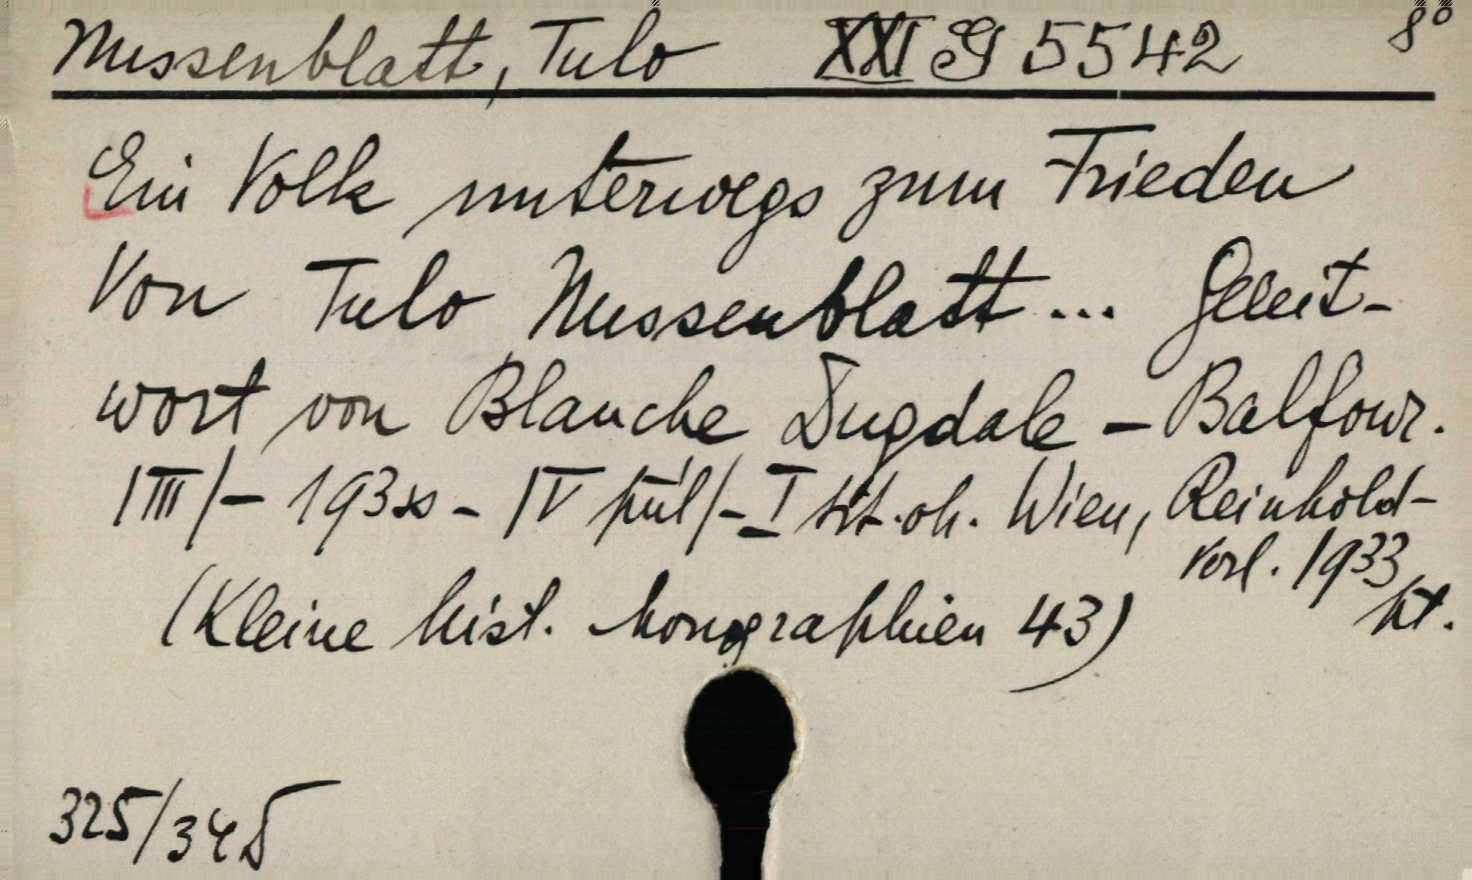 Nussenblatt, Tulo XXI G 5542 8°
Ein Volk unterwegs zum Frieden
Von Tulo Nussenblatt ... Geleit-
wort von Blanche Dugdale - Balfour.
|III|- 193 - |IV |- I Wien, Reinhold-
Verl. 1933
(Kleine hist. Monographien 43)
325/345